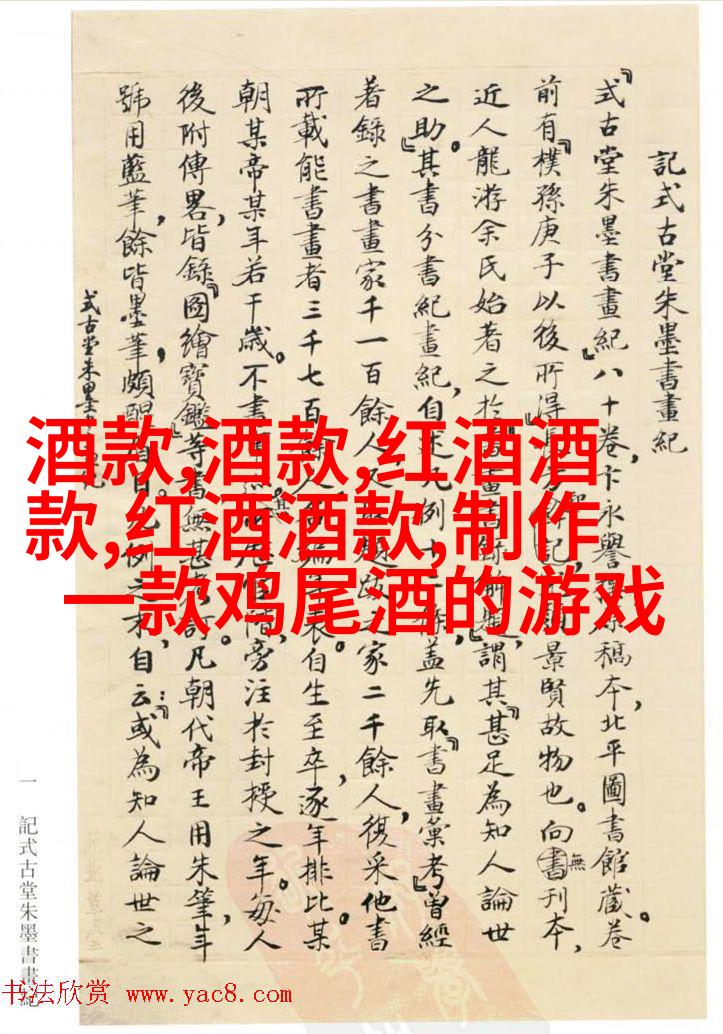 記式古堂朱墨書畫紀
『式古堂朱墨書畫紀』八十卷，卞永譽稿本，北平圖書館藏。卷
前有『樸孫庚子以後所得記，景賢故物也。向無刊本，
近人龍游余氏始著之於謂其『甚足為知人論世
之助』。其書分書紀畫紀，自述凡例十條，蓋先取『書畫彙考』曾經
著錄之書畫家千一百餘人，又題跋之家二千餘人，後采他書
所載能書畫者三千七百餘人表。自生至卒，逐年排比。某
朝某帝某年若干歲。不書階，旁注於封授之年。每人
後附傳畧，皆錄『圖繪寶鑑』等書，無甚考訂。凡朝代帝王用朱筆，年
號用藍筆，餘皆墨筆，頗醒目。凡例之末，自云：『或為知人論世之
式古堂朱墨
一 記式古堂朱墨書畫紀
酒款,酒款,红酒酒
款,红酒酒款,制作
一款鸡尾酒的游戏
书法欣赏 www.yac8.com